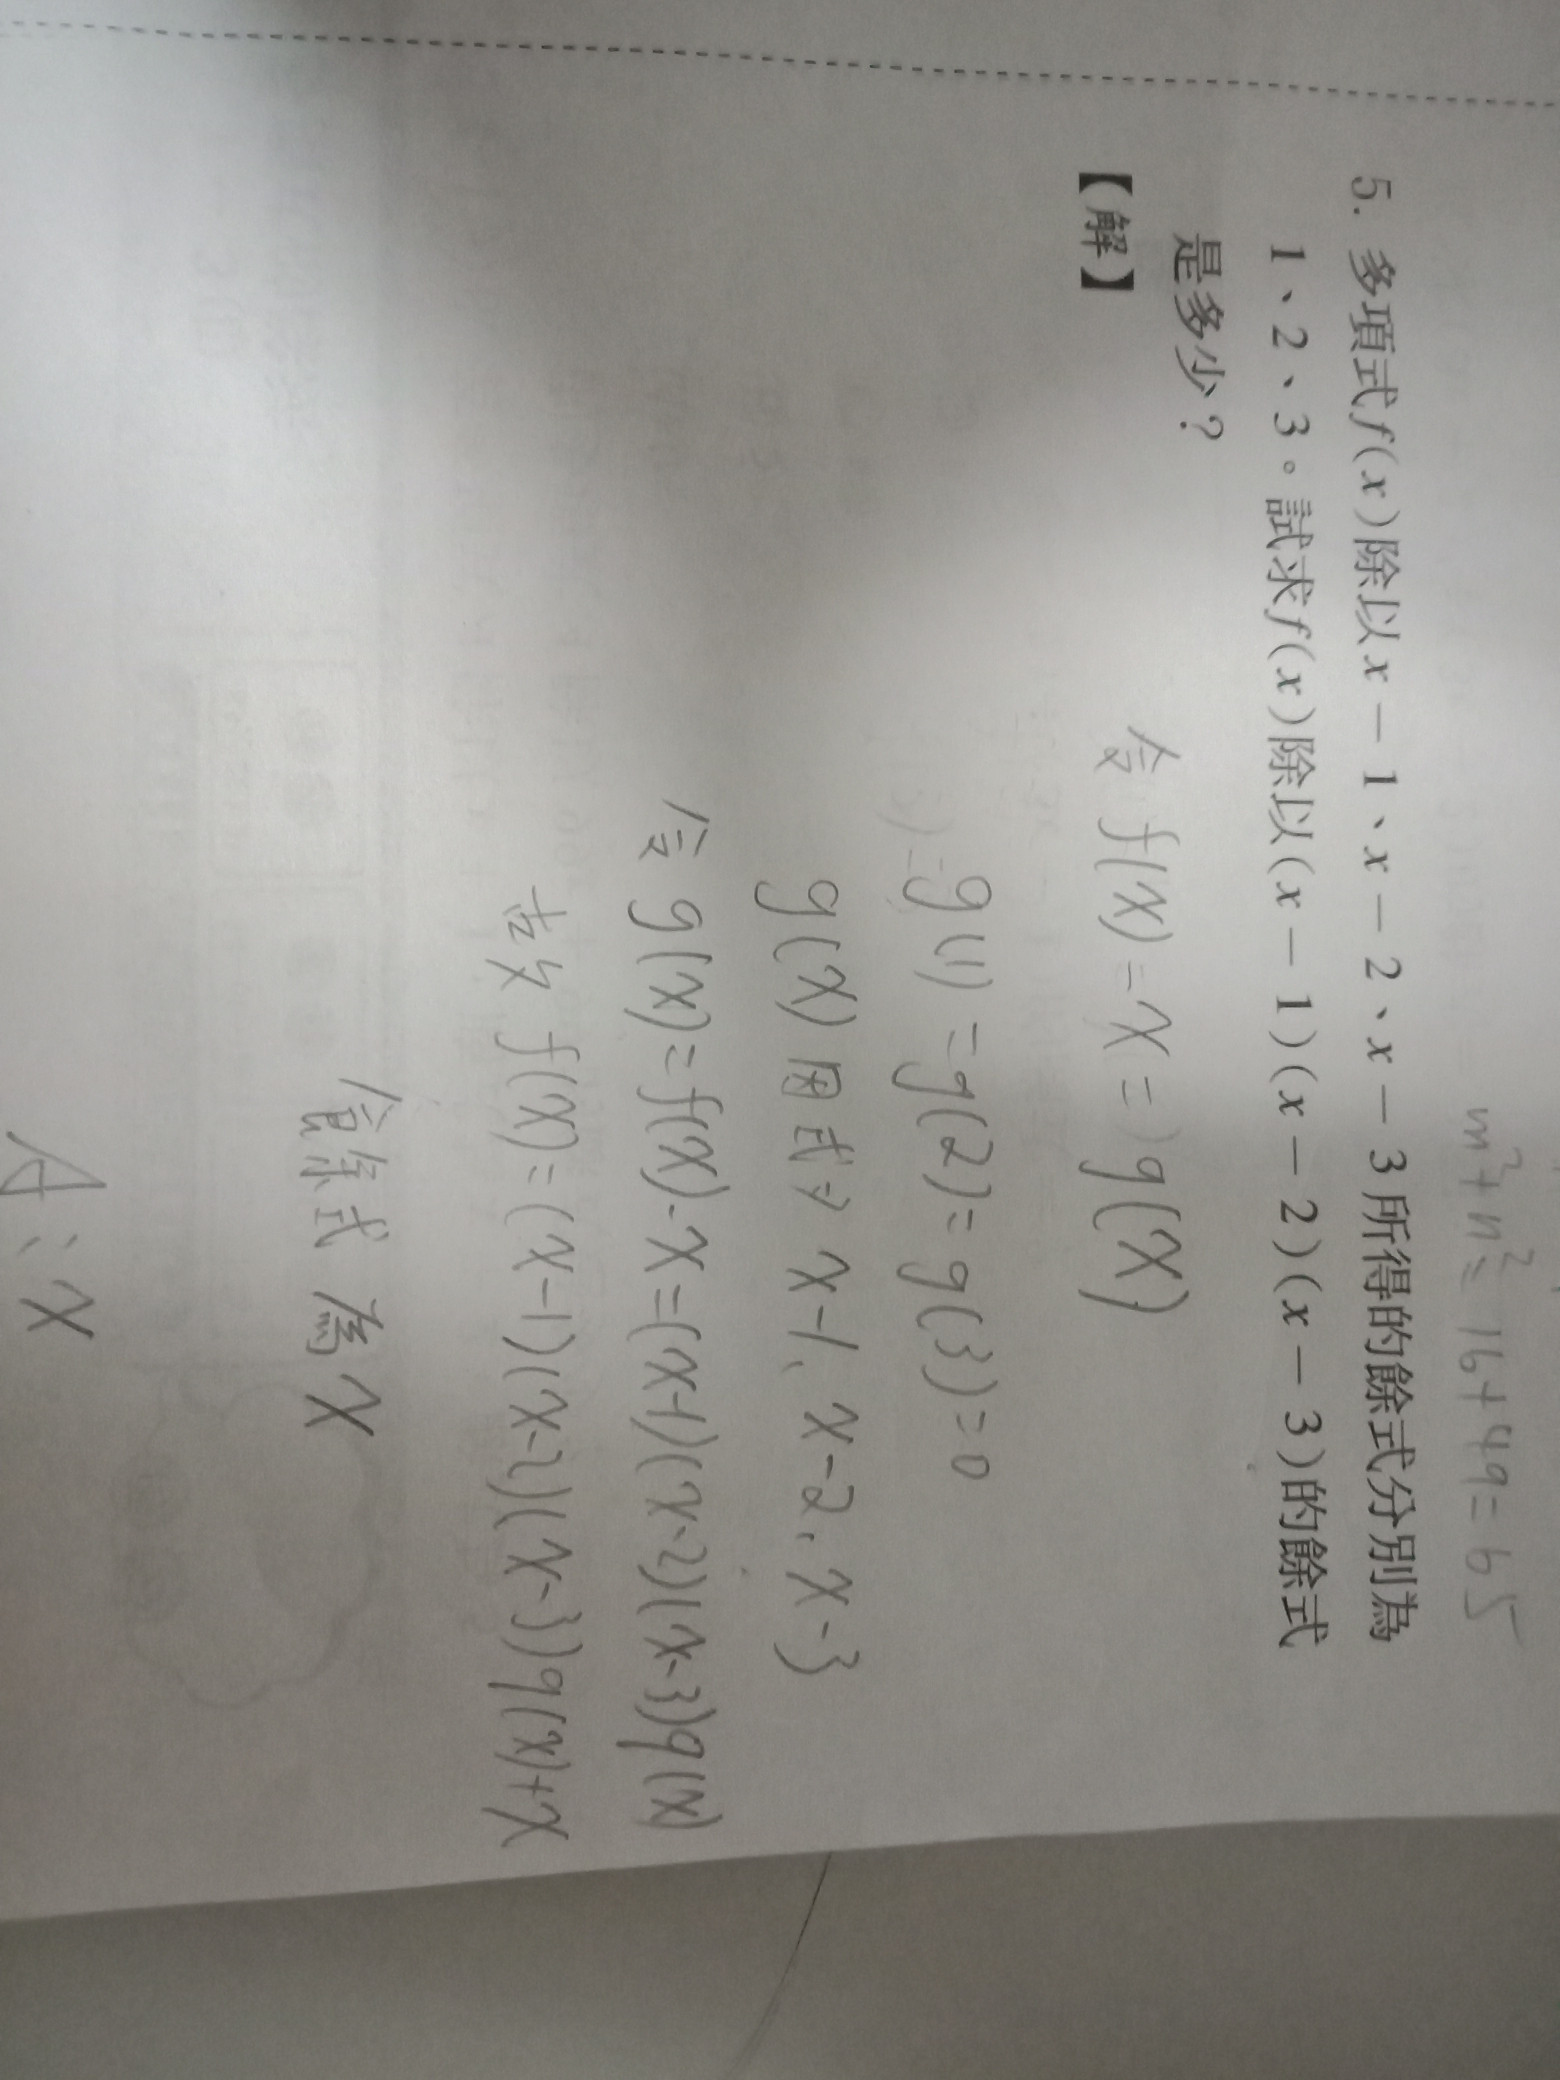 m²+n²=16+49=65
5. 多項式f(x)除以x－1、x－2、x－3所得的餘式分別為
1、2、3。試求f(x)除以(x－1)(x－2)(x－3)的餘式
是多少？
【解】
令 f(x)-x=g(x)
g(1)=g(2)=g(3)=0
g(x)因式⇒ x-1、x-2、x-3
令 g(x)=f(x)-x=(x-1)(x-2)(x-3)q(x)
故 f(x)=(x-1)(x-2)(x-3)q(x)+x
餘式為x
A:x